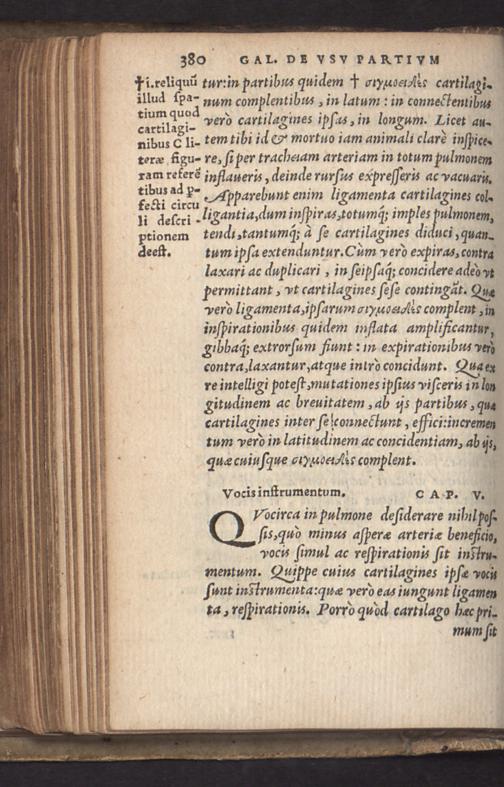 380 GAL. DE VSV PARTIVM
†i.reliquũ
illud spa-
tium quod
cartilagi-
nibus C li-
teræ figu-
ram referẽ
tibus ad p-
fecti circu
li descri-
ptionem
deest.
tur:in partibus quidem † σιγμοειδὲς cartilagi-
num complentibus, in latum: in connectentibus
verò cartilagines ipsas, in longum. Licet au-
tem tibi id & mortuo iam animali clarè inspice-
re, si per tracheiam arteriam in totum pulmonem
inflaueris, deinde rursus expresseris ac vacuaris.
Apparebunt enim ligamenta cartilagines col-
ligantia, dum inspiras, totumq́; imples pulmonem,
tendi, tantumq́; à se cartilagines diduci, quan-
tum ipsa extenduntur. Cùm verò expiras, contra
laxari ac duplicari, in seipsaq́; concidere adeò vt
permittant, vt cartilagines sese contingãt. Quæ
verò ligamenta, ipsarum σιγμοειδὲς complent, in
inspirationibus quidem inflata amplificantur,
gibbaq́; extrorsum fiunt: in expirationibus verò
contra, laxantur, atque intrò concidunt. Qua ex
re intelligi potest, mutationes ipsius visceris in lon
gitudinem ac breuitatem, ab ijs partibus, quæ
cartilagines inter se connectunt, effici: incremen
tum verò in latitudinem ac concidentiam, ab ijs,
quæ cuiusque σιγμοειδὲς complent.
Vocis instrumentum. CAP. V.
QVocirca in pulmone desiderare nihil pos-
sis, quò minus asperæ arteriæ beneficio,
vocis simul ac respirationis sit instru-
mentum. Quippe cuius cartilagines ipsæ vocis
sunt instrumenta: quæ verò eas iungunt ligamen
ta, respirationis. Porrò quòd cartilago hæc pri-
mum sit